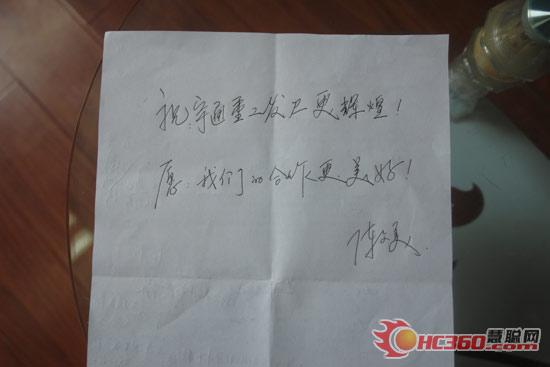 祝：宇通重工发展更辉煌！
愿：我们的合作更美好！
HC360.com慧聪网